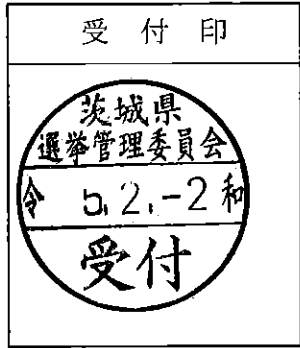 受付印
茨城県
選挙管理委員会
令 5.2.-2 和
受付